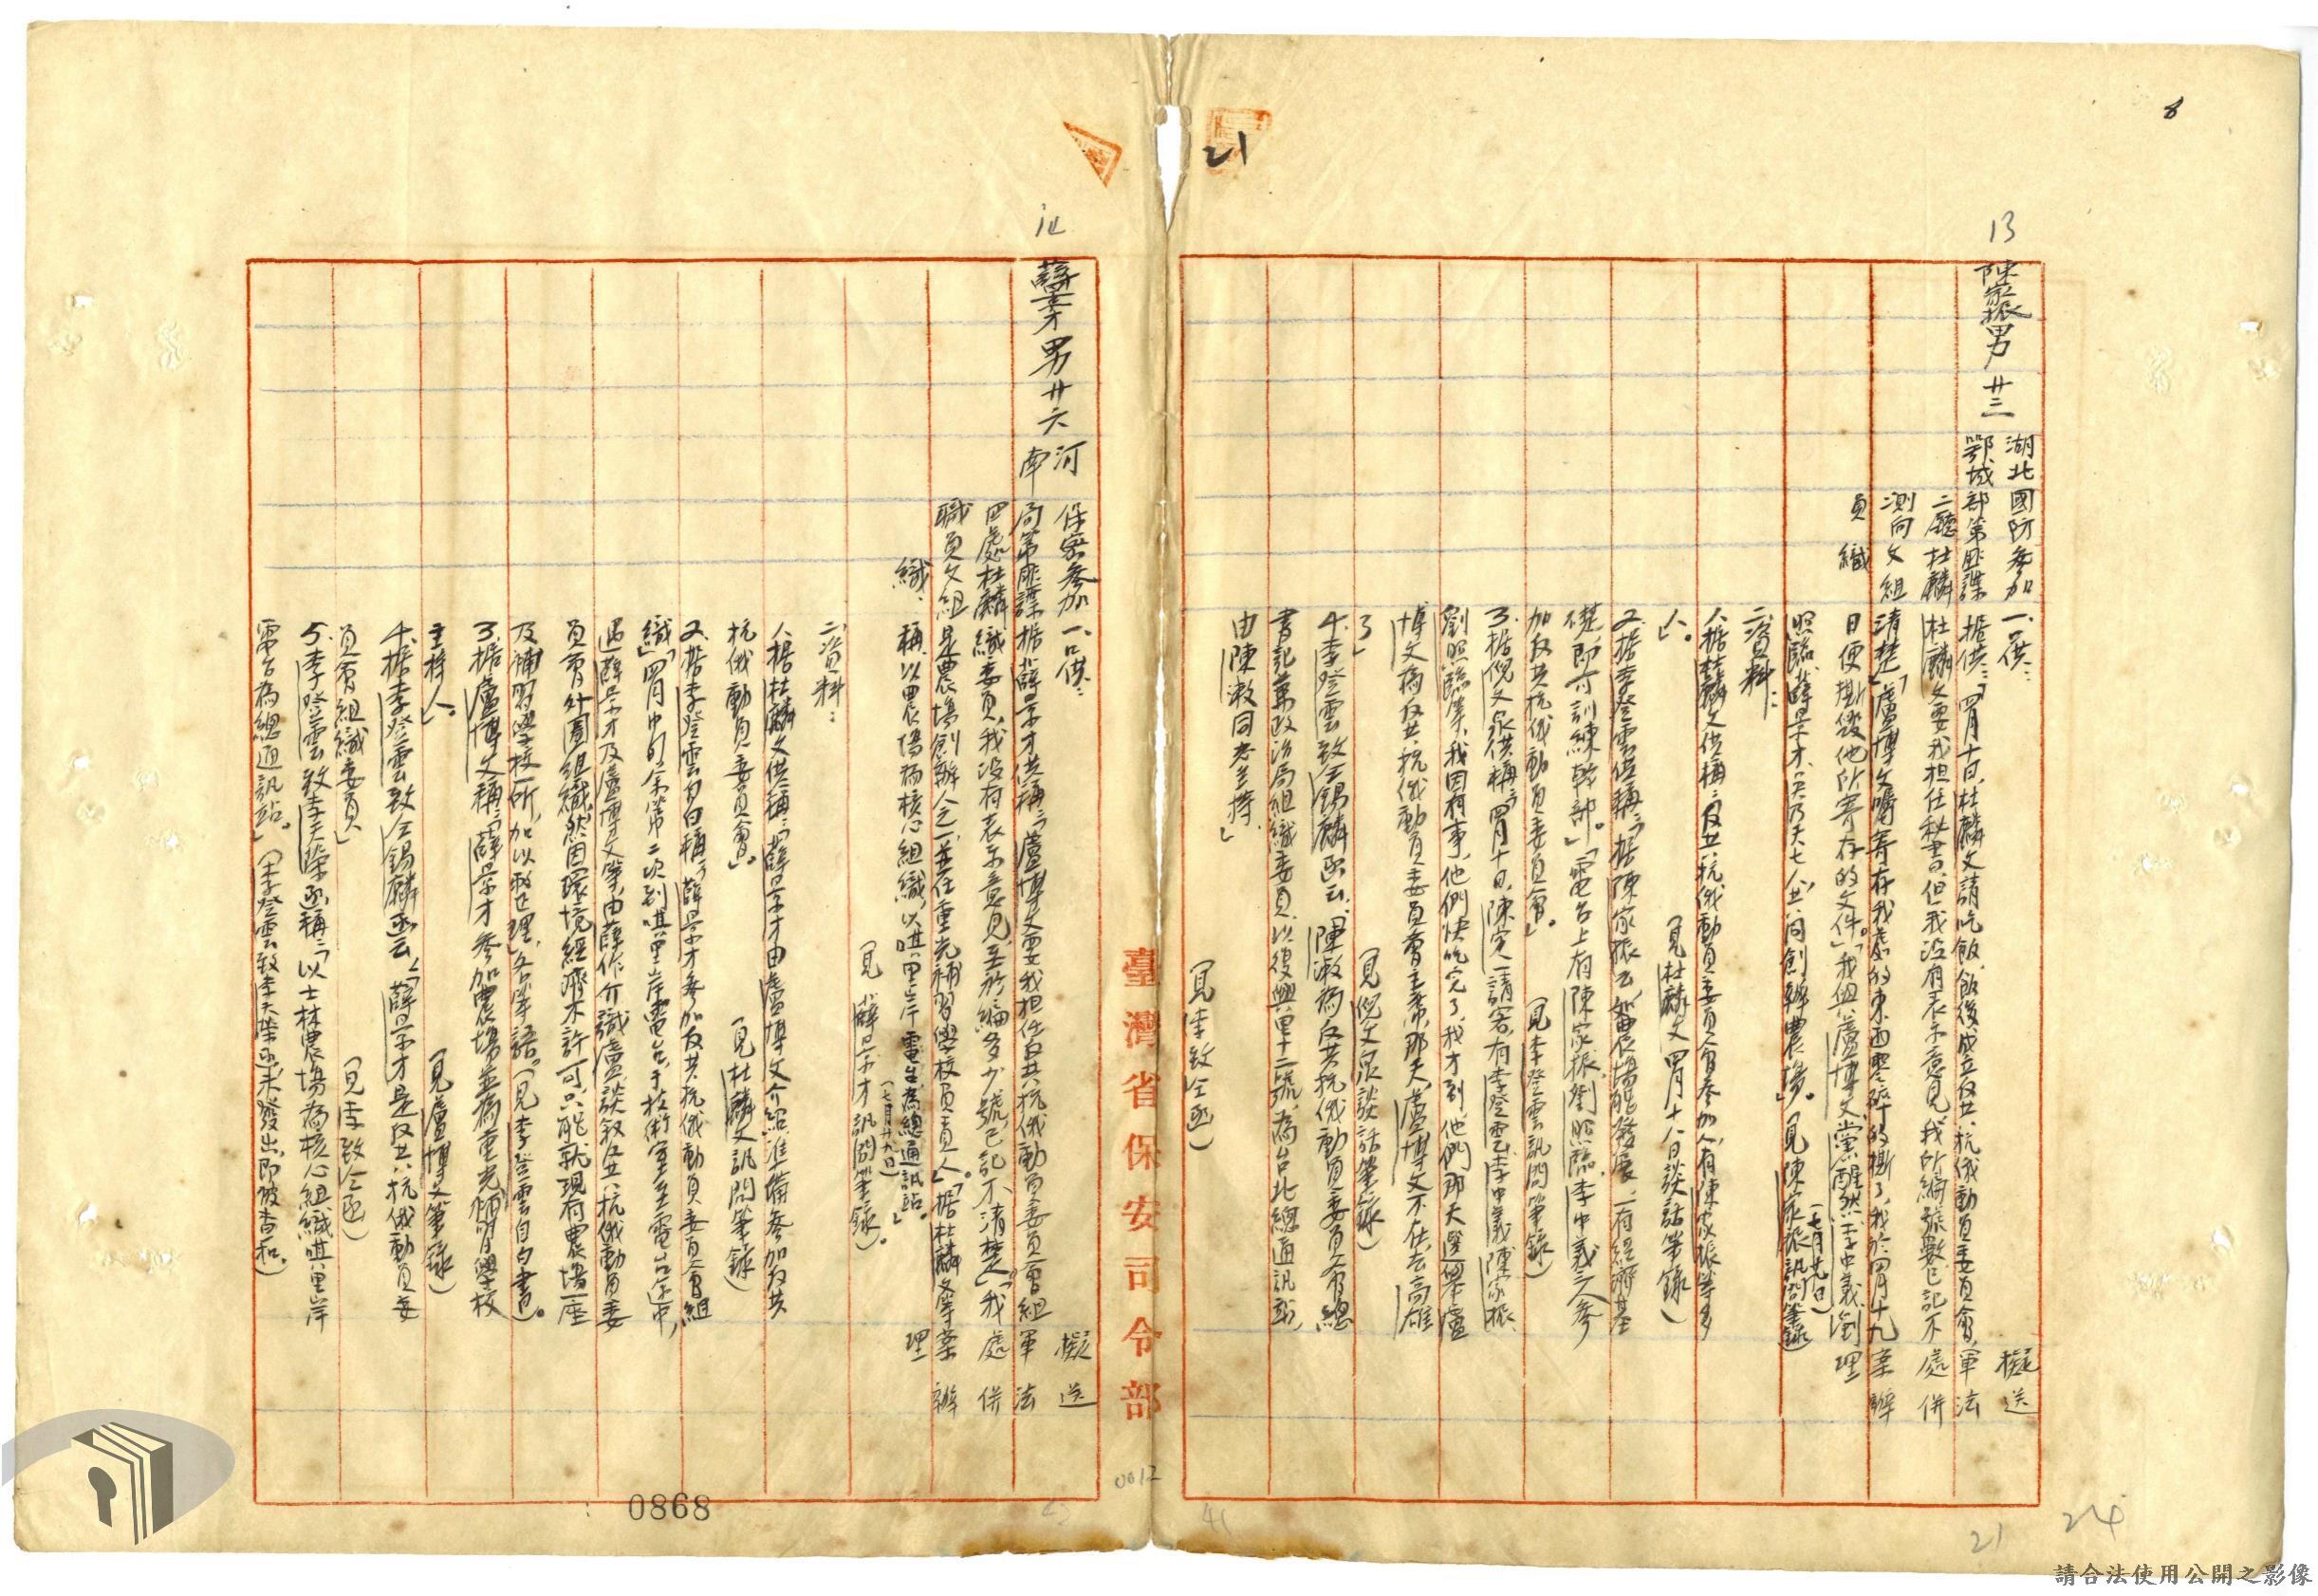 8
21
13
陳家振男 廿三
湖北
鄂城
國防
部第
二廳
測向
員
參加
匪諜
杜麟
文組
織
一、口供：
據供：「四月十日，杜麟文請吃飯，飯後成立反共抗俄動員委員會，
杜麟文要我担任秘書，但我沒有表示意見，我所編號數已記不
清楚」「盧博文囑寄存我處的東西零碎的撕了，我於四月十九
日便撕燬他所寄存的文件。」「我與盧博文、黨醒然、李中義、劉
照臨、薛景才、吳乃天七人共同創辦農場」。(見陳家振訊問筆錄
二、資料：
1.據杜麟文供稱：「反共抗俄動員委員會參加人有陳家振等多
人」。 (見杜麟文四月十八日談話筆錄)
2.據李登雲供稱：「據陳家振云，當農場能發展，有經濟基
礎，即可訓練幹部。」「電台上有陳家振、劉照臨、李中義三人參
加反共抗俄動員委員會」。 (見李登雲訊問筆錄)
3.據倪文泉供稱：「四月十日，陳定一請客，有李登雲、李中義、陳家振、
劉照臨等，我因有事，他們快吃完了，我才到，他們那天選舉盧
博文為反共抗俄動員委員會主席，那天，盧博文不在，去高雄
了」 (見倪文泉談話筆錄)
4.李登雲致仝錫麟函云：「陳漱為反共抗俄動員委員會總
書記兼政治局組織委員，以復興里十二號，為台北總通訊站，
由陳漱同志主持。」
(見李致仝函)
擬送
軍法
處併
案辦
理
臺灣省保安司令部
14
薛景才 男 廿六 河南
保密
局第
四處
職員
參加
匪諜
杜麟
文組
織
一、口供：
據薛景才供稱：「盧博文要我担任反共抗俄動員委員會組
織委員，我沒有表示意見，至於編多少號，已記不清楚」。「我
是農場創辦人之一，並任重光補習學校負責人」。「據杜麟文等
稱：以農場為核心組織，以唭里岸電台為總通訊站。」
(七月廿九日)
(見薛景才訊問筆錄)。
二、資料：
1.據杜麟文供稱：「薛景才由盧博文介紹，準備參加反共
抗俄動員委員會」。 (見杜麟文訊問筆錄)
2.據李登雲自白稱：「薛景才參加反共抗俄動員委員會組
織」「四月中旬，余第二次到唭里岸電台，于技術室至電台途中，
遇薛景才及盧博文等，由薛作介識盧談敘反共抗俄動員委
員會外圍組織，然因環境經濟不許可，只能就現有農場一座
及補習學校一所，加以整理」各等語。(見李登雲自白書)。
3.據盧博文稱：「薛景才參加農場並為重光補習學校
主持人」。 (見盧博文筆錄)
4.據李登雲致仝錫麟函云：「薛景才是反共抗俄動員委
員會組織委員」 (見李致仝函)
5.李登雲致李天榮函稱：「以士林農場為核心組織，唭里岸
電台為總通訊站。」(李登雲致李天榮函未發出，即被查扣。)
擬送
軍法
處併
案辦
理
0868
0012
41
21
24
請合法使用公開之影像